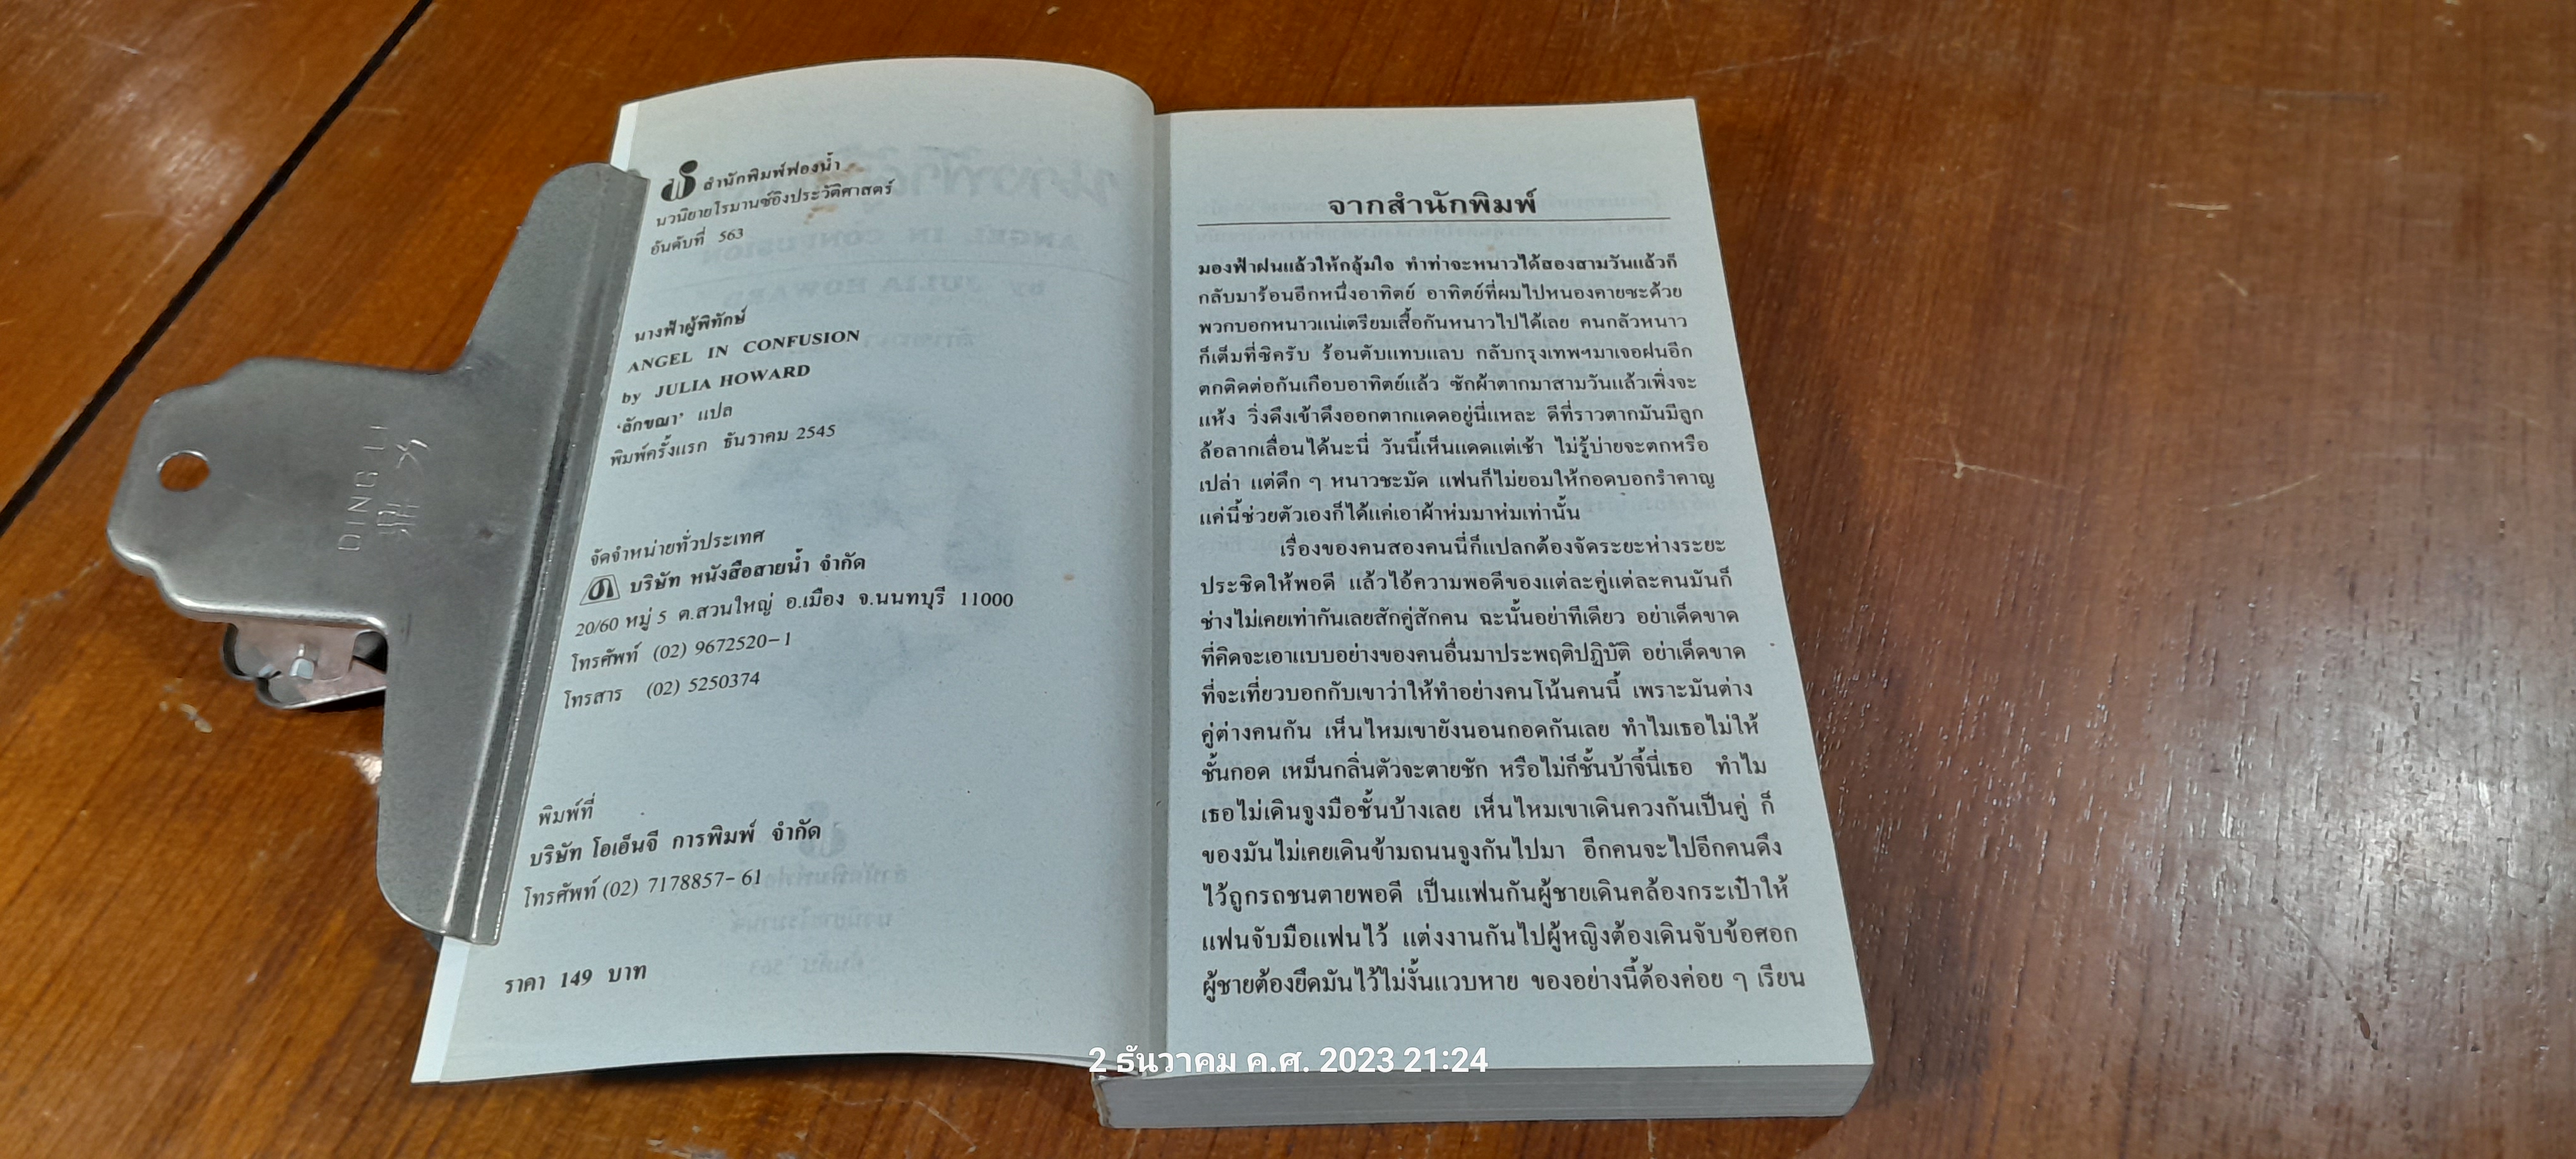 สำนักพิมพ์ฟองน้ำ
นวนิยายโรมานซ์อิงประวัติศาสตร์
อันดับที่ 563
นางฟ้าผู้พิทักษ์
ANGEL IN CONFUSION
by JULIA HOWARD
'ลักขณา' แปล
พิมพ์ครั้งแรก ธันวาคม 2545
จัดจำหน่ายทั่วประเทศ
บริษัท หนังสือสายน้ำ จำกัด
20/60 หมู่ 5 ต.สวนใหญ่ อ.เมือง จ.นนทบุรี 11000
โทรศัพท์ (02) 9672520-1
โทรสาร (02) 5250374
พิมพ์ที่
บริษัท โอเอ็นจี การพิมพ์ จำกัด
โทรศัพท์ (02) 7178857-61
ราคา 149 บาท
จากสำนักพิมพ์
มองฟ้าฝนแล้วให้กลุ้มใจ ทำท่าจะหนาวได้สองสามวันแล้วก็
กลับมาร้อนอีกหนึ่งอาทิตย์ อาทิตย์ที่ผมไปหนองคายซะด้วย
พวกบอกหนาวแน่เตรียมเสื้อกันหนาวไปได้เลย คนกลัวหนาว
ก็เต็มที่ซิครับ ร้อนตับแทบแลบ กลับกรุงเทพฯมาเจอฝนอีก
ตกติดต่อกันเกือบอาทิตย์แล้ว ซักผ้าตากมาสามวันแล้วเพิ่งจะ
แห้ง วิ่งดึงเข้าดึงออกตากแดดอยู่นี่แหละ ดีที่ราวตากมันมีลูก
ล้อลากเลื่อนได้นะนี่ วันนี้เห็นแดดแต่เช้า ไม่รู้บ่ายจะตกหรือ
เปล่า แต่ดึก ๆ หนาวชะมัด แฟนก็ไม่ยอมให้กอดบอกรำคาญ
แค่นี้ช่วยตัวเองก็ได้แค่เอาผ้าห่มมาห่มเท่านั้น
เรื่องของคนสองคนนี่ก็แปลกต้องจัดระยะห่างระยะ
ประชิดให้พอดี แล้วไอ้ความพอดีของแต่ละคู่แต่ละคนมันก็
ช่างไม่เคยเท่ากันเลยสักคู่สักคน ฉะนั้นอย่าทีเดียว อย่าเด็ดขาด
ที่คิดจะเอาแบบอย่างของคนอื่นมาประพฤติปฏิบัติ อย่าเด็ดขาด
ที่จะเที่ยวบอกกับเขาว่าให้ทำอย่างคนโน้นคนนี้ เพราะมันต่าง
คู่ต่างคนกัน เห็นไหมเขายังนอนกอดกันเลย ทำไมเธอไม่ให้
ชั้นกอด เหม็นกลิ่นตัวจะตายชัก หรือไม่ก็ชั้นบ้าจี้นี่เธอ ทำไม
เธอไม่เดินจูงมือชั้นบ้างเลย เห็นไหมเขาเดินควงกันเป็นคู่ ก็
ของมันไม่เคยเดินข้ามถนนจูงกันไปมา อีกคนจะไปอีกคนดึง
ไว้ถูกรถชนตายพอดี เป็นแฟนกันผู้ชายเดินคล้องกระเป๋าให้
แฟนจับมือแฟนไว้ แต่งงานกันไปผู้หญิงต้องเดินจับข้อศอก
ผู้ชายต้องยึดมันไว้ไม่งั้นแวบหาย ของอย่างนี้ต้องค่อย ๆ เรียน
DING LI
2 ธันวาคม ค.ศ. 2023 21:24